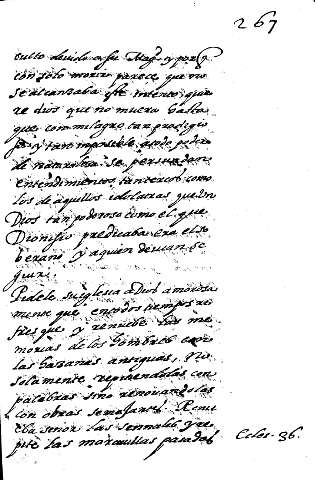 267
culto devido a su Mag. y porq
con solo morir parece que no
se alcançaba este intento, quie
re dios que no muera hasta
que con milagro tan prodigio
so y tan imposible a todo poder
de naturaleza se persuadan
entendimientos tan tercos como
los de aquellos idolatras que un
Dios tan poderoso como el que
Dionisio predicaba era el so
berano y a quien devian se
guir.
Pidele su iglesia a Dios amorosa
mente que en todos tiempos re
fresque y renueve las me
morias de los hombres con
las hazañas antiguas, No
solamente repitiendolas con
palabras sino renovandolas
con obras semejantes. Renue
ba señor las señales y re
pite las maravillas pasadas
Ecles. 36.